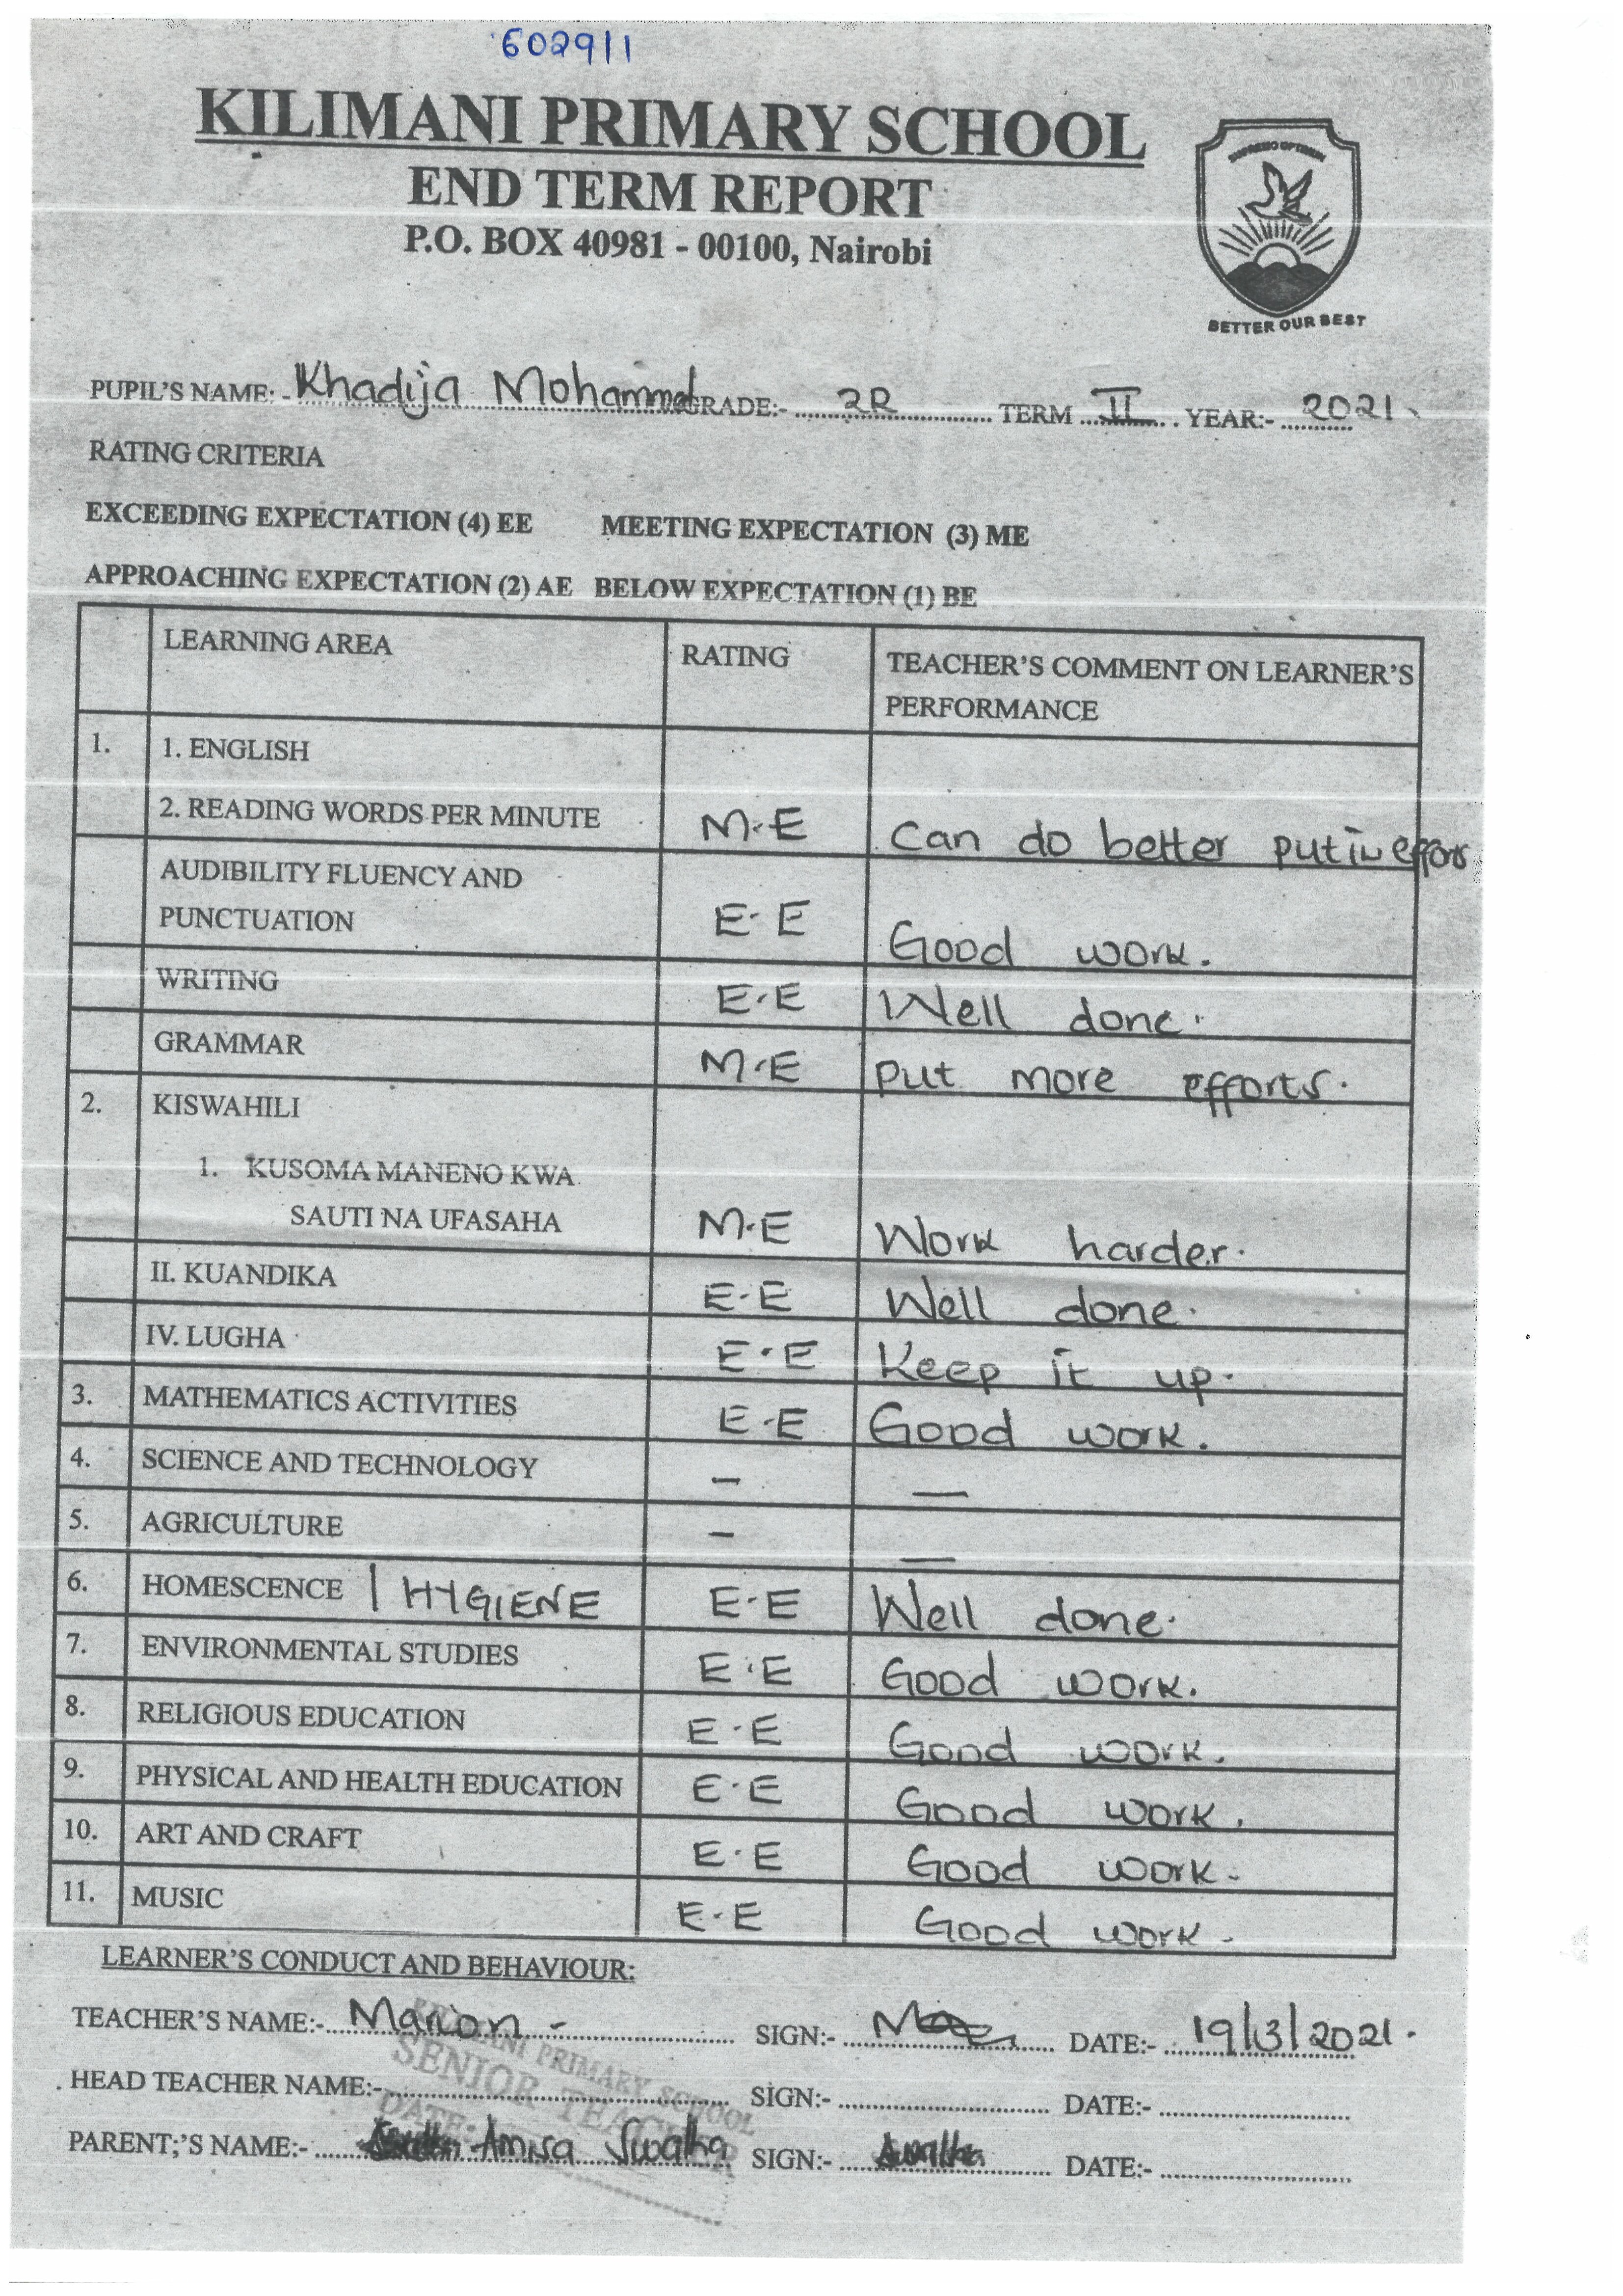 602911
KILIMANI PRIMARY SCHOOL
END TERM REPORT
P.O. BOX 40981 - 00100, Nairobi
BETTER OUR BEST
PUPIL'S NAME: - Khadija Mohammed GRADE:- 2R TERM II. YEAR:- 2021.
RATING CRITERIA
EXCEEDING EXPECTATION (4) EE MEETING EXPECTATION (3) ME
APPROACHING EXPECTATION (2) AE BELOW EXPECTATION (1) BE
LEARNING AREA RATING TEACHER'S COMMENT ON LEARNER'S
PERFORMANCE
1. 1. ENGLISH
2. READING WORDS PER MINUTE M.E Can do better put in effort
AUDIBILITY FLUENCY AND
PUNCTUATION E.E Good work.
WRITING E.E Well done.
GRAMMAR M.E Put more efforts.
2. KISWAHILI
1. KUSOMA MANENO KWA
SAUTI NA UFASAHA M.E Work harder.
II. KUANDIKA E.E Well done.
IV. LUGHA E.E Keep it up.
3. MATHEMATICS ACTIVITIES E.E Good work.
4. SCIENCE AND TECHNOLOGY – —
5. AGRICULTURE – —
6. HOMESCENCE | HYGIENE E.E Well done.
7. ENVIRONMENTAL STUDIES E.E Good work.
8. RELIGIOUS EDUCATION E.E Good work.
9. PHYSICAL AND HEALTH EDUCATION E.E Good work.
10. ART AND CRAFT E.E Good work.
11. MUSIC E.E Good work.
LEARNER'S CONDUCT AND BEHAVIOUR:
TEACHER'S NAME:- Marion - SIGN:- DATE:- 19/3/2021.
KILIMANI PRIMARY SCHOOL
SENIOR TEACHER
DATE:
HEAD TEACHER NAME:- SIGN:- DATE:-
PARENT;'S NAME:- Amisa Swalha SIGN:- DATE:-